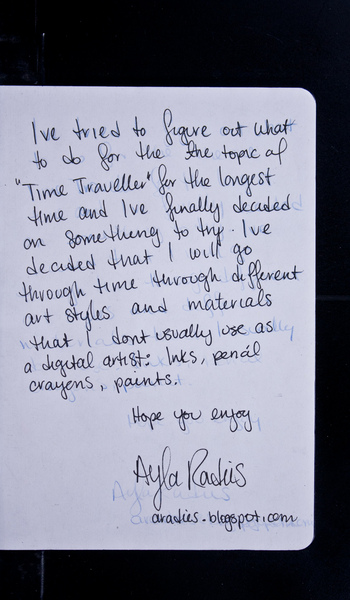 I've tried to figure out what
to do for the the topic of
"Time Traveller" for the longest
time and I've finally decided
on something to try. I've
decided that I will go
through time through different
art styles and materials
that I dont usually use as
a digital artist: Inks, pencil
crayons, paints.
Hope you enjoy
Ayla Radies
aradies.blogspot.com